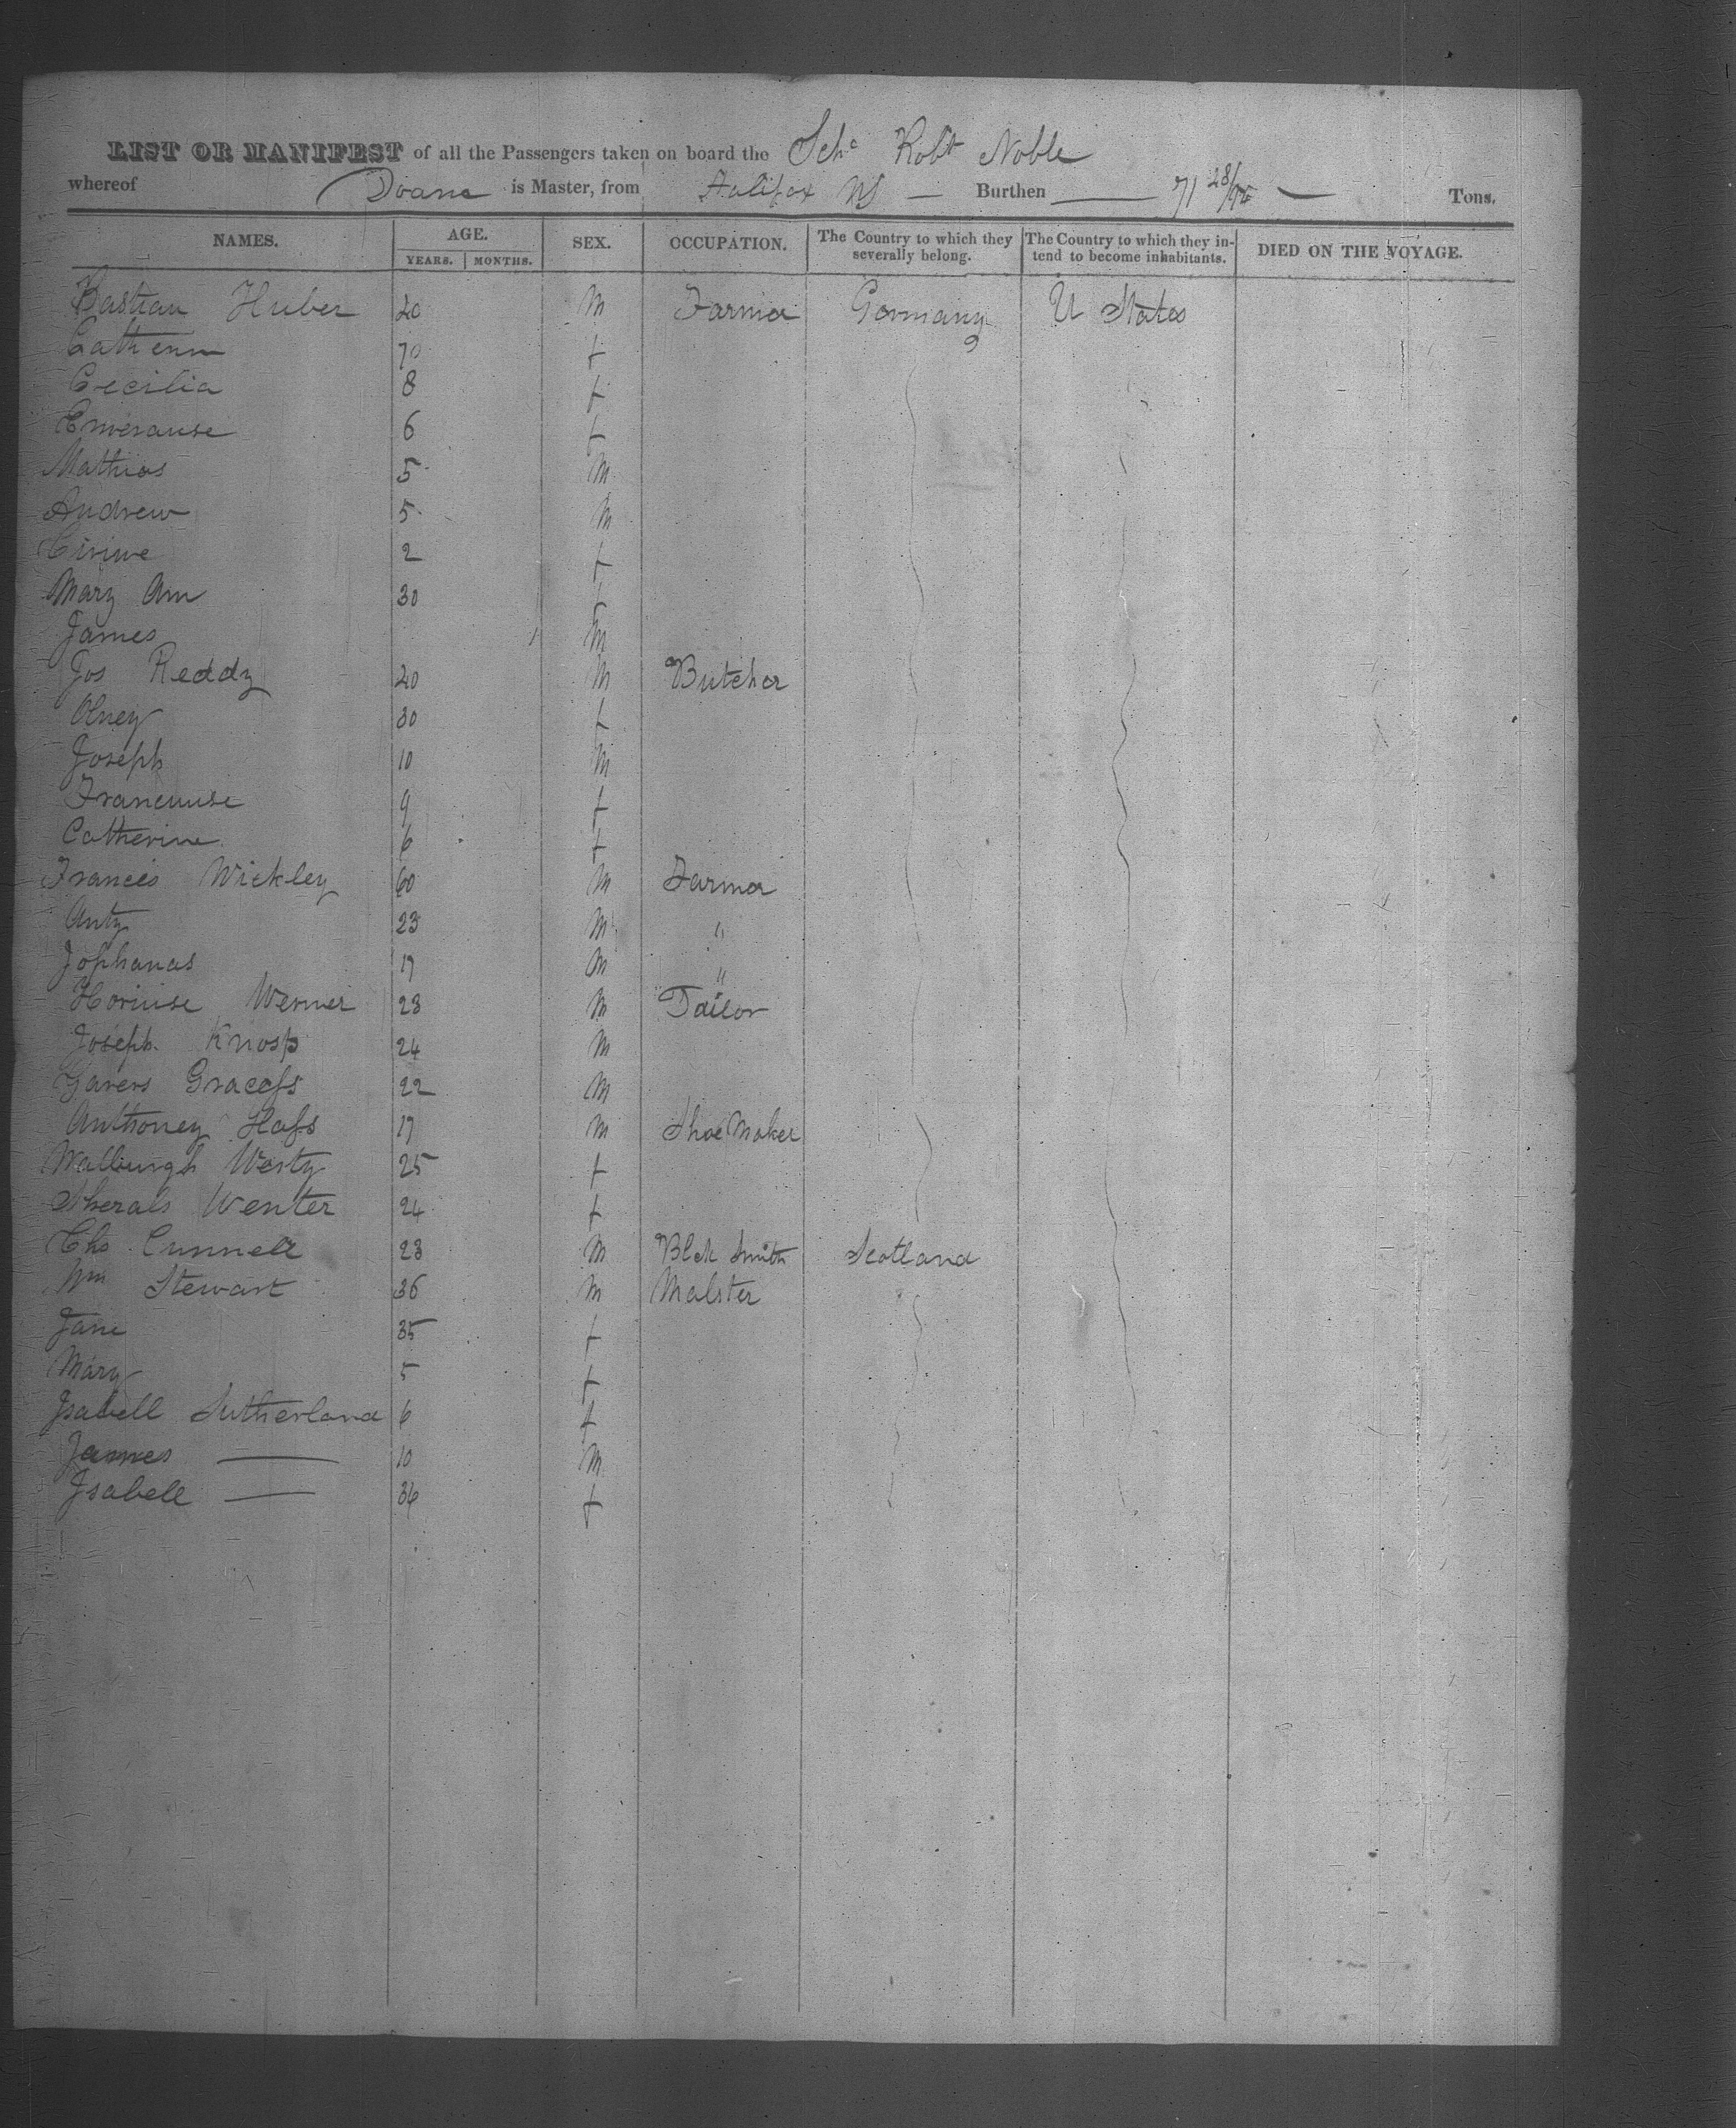 LIST OR MANIFEST of all the Passengers taken on board the Schr Robt Noble
whereof Doane is Master, from Halifax NS — Burthen 71 28/95 Tons.
NAMES. AGE. YEARS. MONTHS. SEX. OCCUPATION. The Country to which they severally belong. The Country to which they intend to become inhabitants. DIED ON THE VOYAGE.
Bastian Huber 40 M Farmer Germany U States
Cathenn 70 f
Cecilia 8 f
6 f
Mathias 5 M
Andrew 5 M
2 f
Mary Ann 30 f
James 1 M
Jos Reddy 40 M Butcher
Olney 30 f
Joseph 10 M
9 f
Catherine 6 f
Francis Wickley 60 M Farmer
Anty 23 M "
Jophanas 17 M "
Werner 23 M Tailor
Joseph Knosp 24 M
22 M
Anthoney Hass 17 M Shoe Maker
Walburgh Westy 25 f
Wenter 24 f
Chs Cunnell 23 M Blck Smith Scotland
Wm Stewart 36 M Malster
Jane 35 f
Mary 5 f
Isabell Sutherland 6 f
James — 10 M
Isabell — 36 f